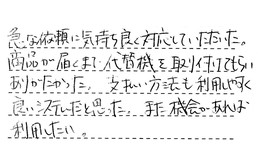 急な依頼に気持ち良く対応していただいた。
商品が届くまで代替機を取り付けてもらい
ありがたかった。支払い方法も利用しやすく
良いシステムだと思った。また機会があれば
利用したい。